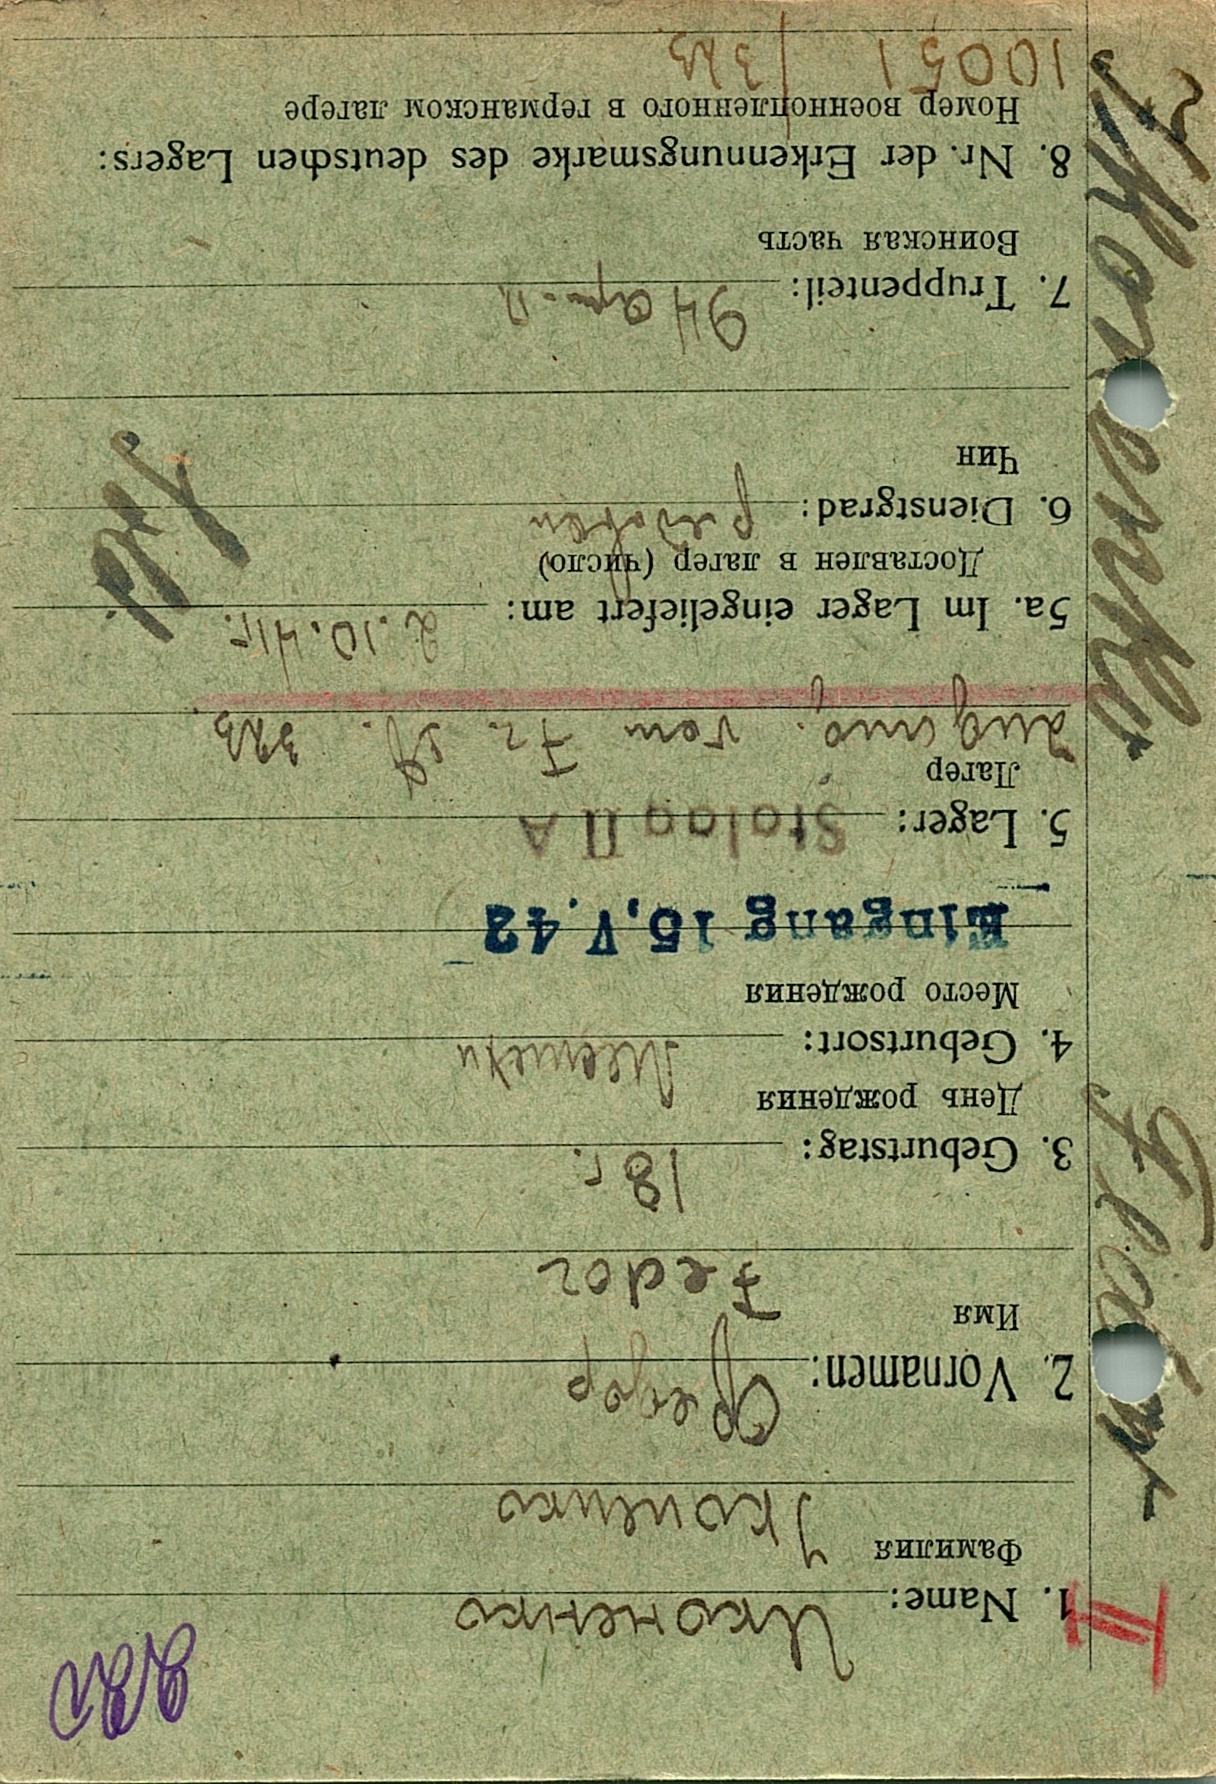 1. Name: Иконенко
Фамилия
Ikonenko
2. Vornamen: Федор
Имя
Fedor
3. Geburtstag: 18 г.
День рождения
4. Geburtsort:
Место рождения
Eingang 15. V. 42
5. Lager: Stalag II A
Лагер
vom Fr. 323
5a. Im Lager eingeliefert am: 2.10.41 г.
Доставлен в лагер (число)
6. Dienstgrad: рядовой
Чин
7. Truppenteil: 94 ар. п.
Воинская часть
8. Nr. der Erkennungsmarke des deutschen Lagers:
Номер военнопленного в германском лагере
10051 / 323
Ikonenko Fedor